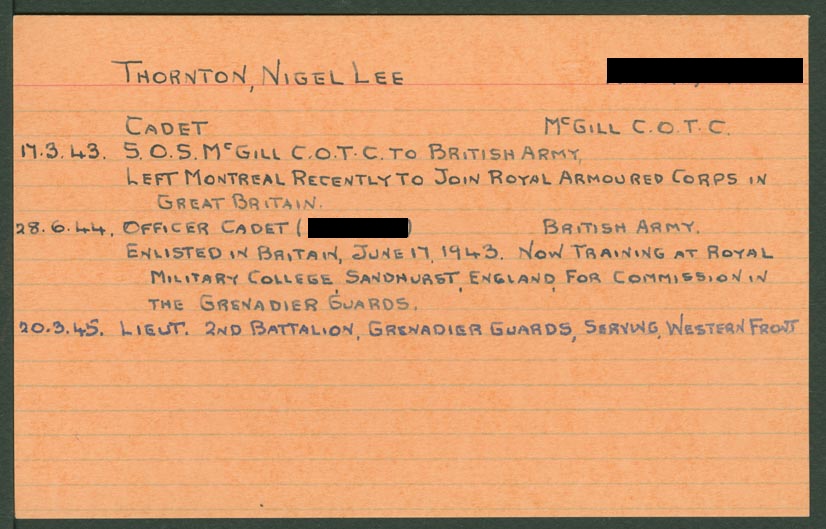 THORNTON, NIGEL LEE
CADET McGILL C.O.T.C.
17.3.43. S.O.S. McGILL C.O.T.C. TO BRITISH ARMY.
LEFT MONTREAL RECENTLY TO JOIN ROYAL ARMOURED CORPS IN
GREAT BRITAIN.
28.6.44. OFFICER CADET ( ) BRITISH ARMY.
ENLISTED IN BRITAIN, JUNE 17, 1943. NOW TRAINING AT ROYAL
MILITARY COLLEGE, SANDHURST, ENGLAND, FOR COMMISSION IN
THE GRENADIER GUARDS.
20.3.45. LIEUT. 2ND BATTALION, GRENADIER GUARDS, SERVING, WESTERN FRONT